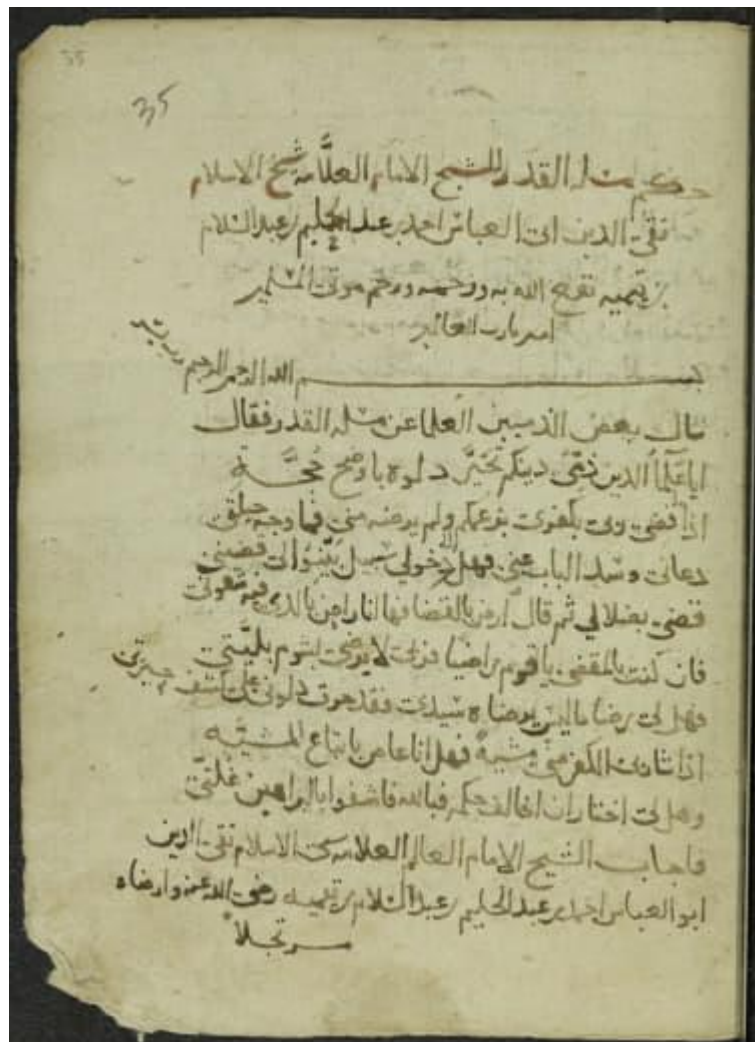 35
35
مسله القدر للشيخ الامام العلامه شيخ الاسلام
تقي الدين ابى العباس احمد بن عبد الحليم بن عبد السلام
بن تيميه نفع الله به ورحمه ورحم موتى المسلمين
امين يارب العالمين
بسم الله الرحمن الرحيم رب يسر
سال بعض الذميين العلما عن مسله القدر فقال
ايا علما الدين ذمى دينكم تحير دلوه باوضح حجة
اذا قضى ربى بكفرى بزعمكم ولم يرضه منى فما وجه حيلتى
دعانى وسد الباب عنى فهل الى دخولي سبيل بينوا لى قضيتى
قضى بضلالي ثم قال ارض بالقضا فها انا راض بالذى فيه شقوتى
فان كنت بالمقضى ياقوم راضيا فربى لا يرضى بشوم بليتي
فهل لى رضا ما ليس يرضاه سيدى فقد حرت دلونى على كشف حيرتى
اذا شا ربى الكفر منى مشية فهل انا عاص باتباع المشيه
وهل لى اختيار ان اخالف حكمه فبالله فاشفوا بالبراهين غلتي
فاجاب الشيخ الامام العالم العلامه الاسلام تقى الدين
ابو العباس احمد بن عبد الحليم بن عبد السلام بن تيميه رضى الله عنه وارضاه
مرتجلا